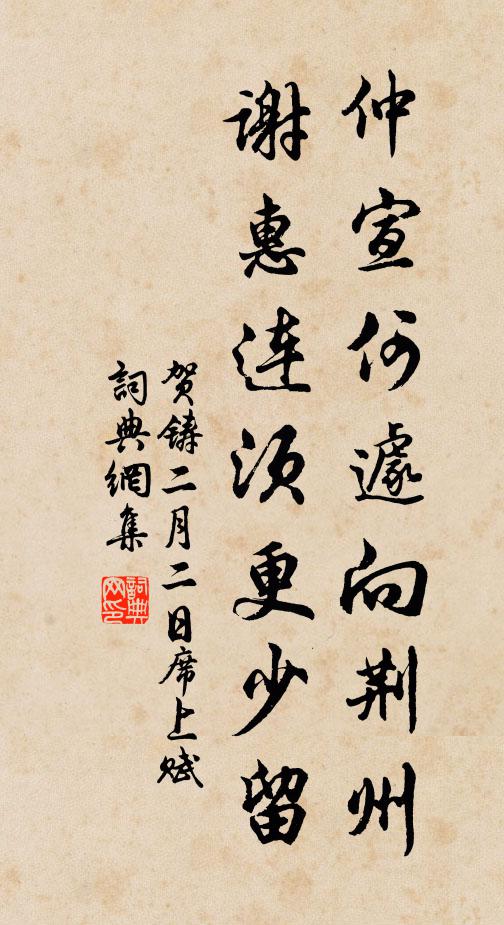 仲宣何遽向荆州
谢惠连须更少留
贺铸二月二日席上赋
词典網集
詞典網印